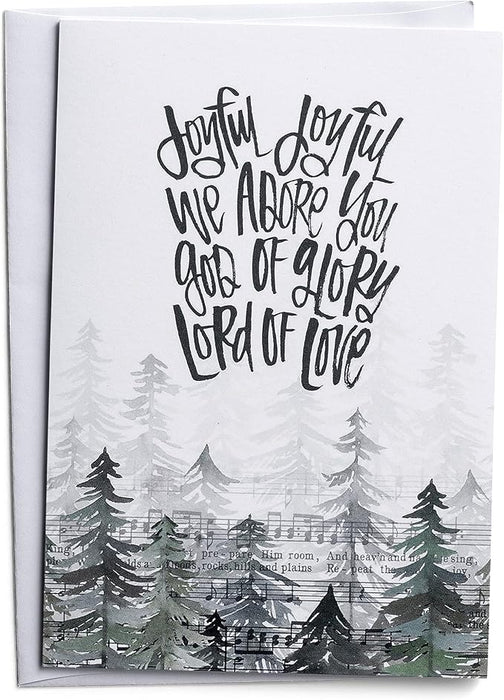 Joyful Joyful
We Adore You
God of Glory
Lord of Love
pre-pare Him room, And heav'n and sing,
rocks, hills and plains Re-peat the joy,